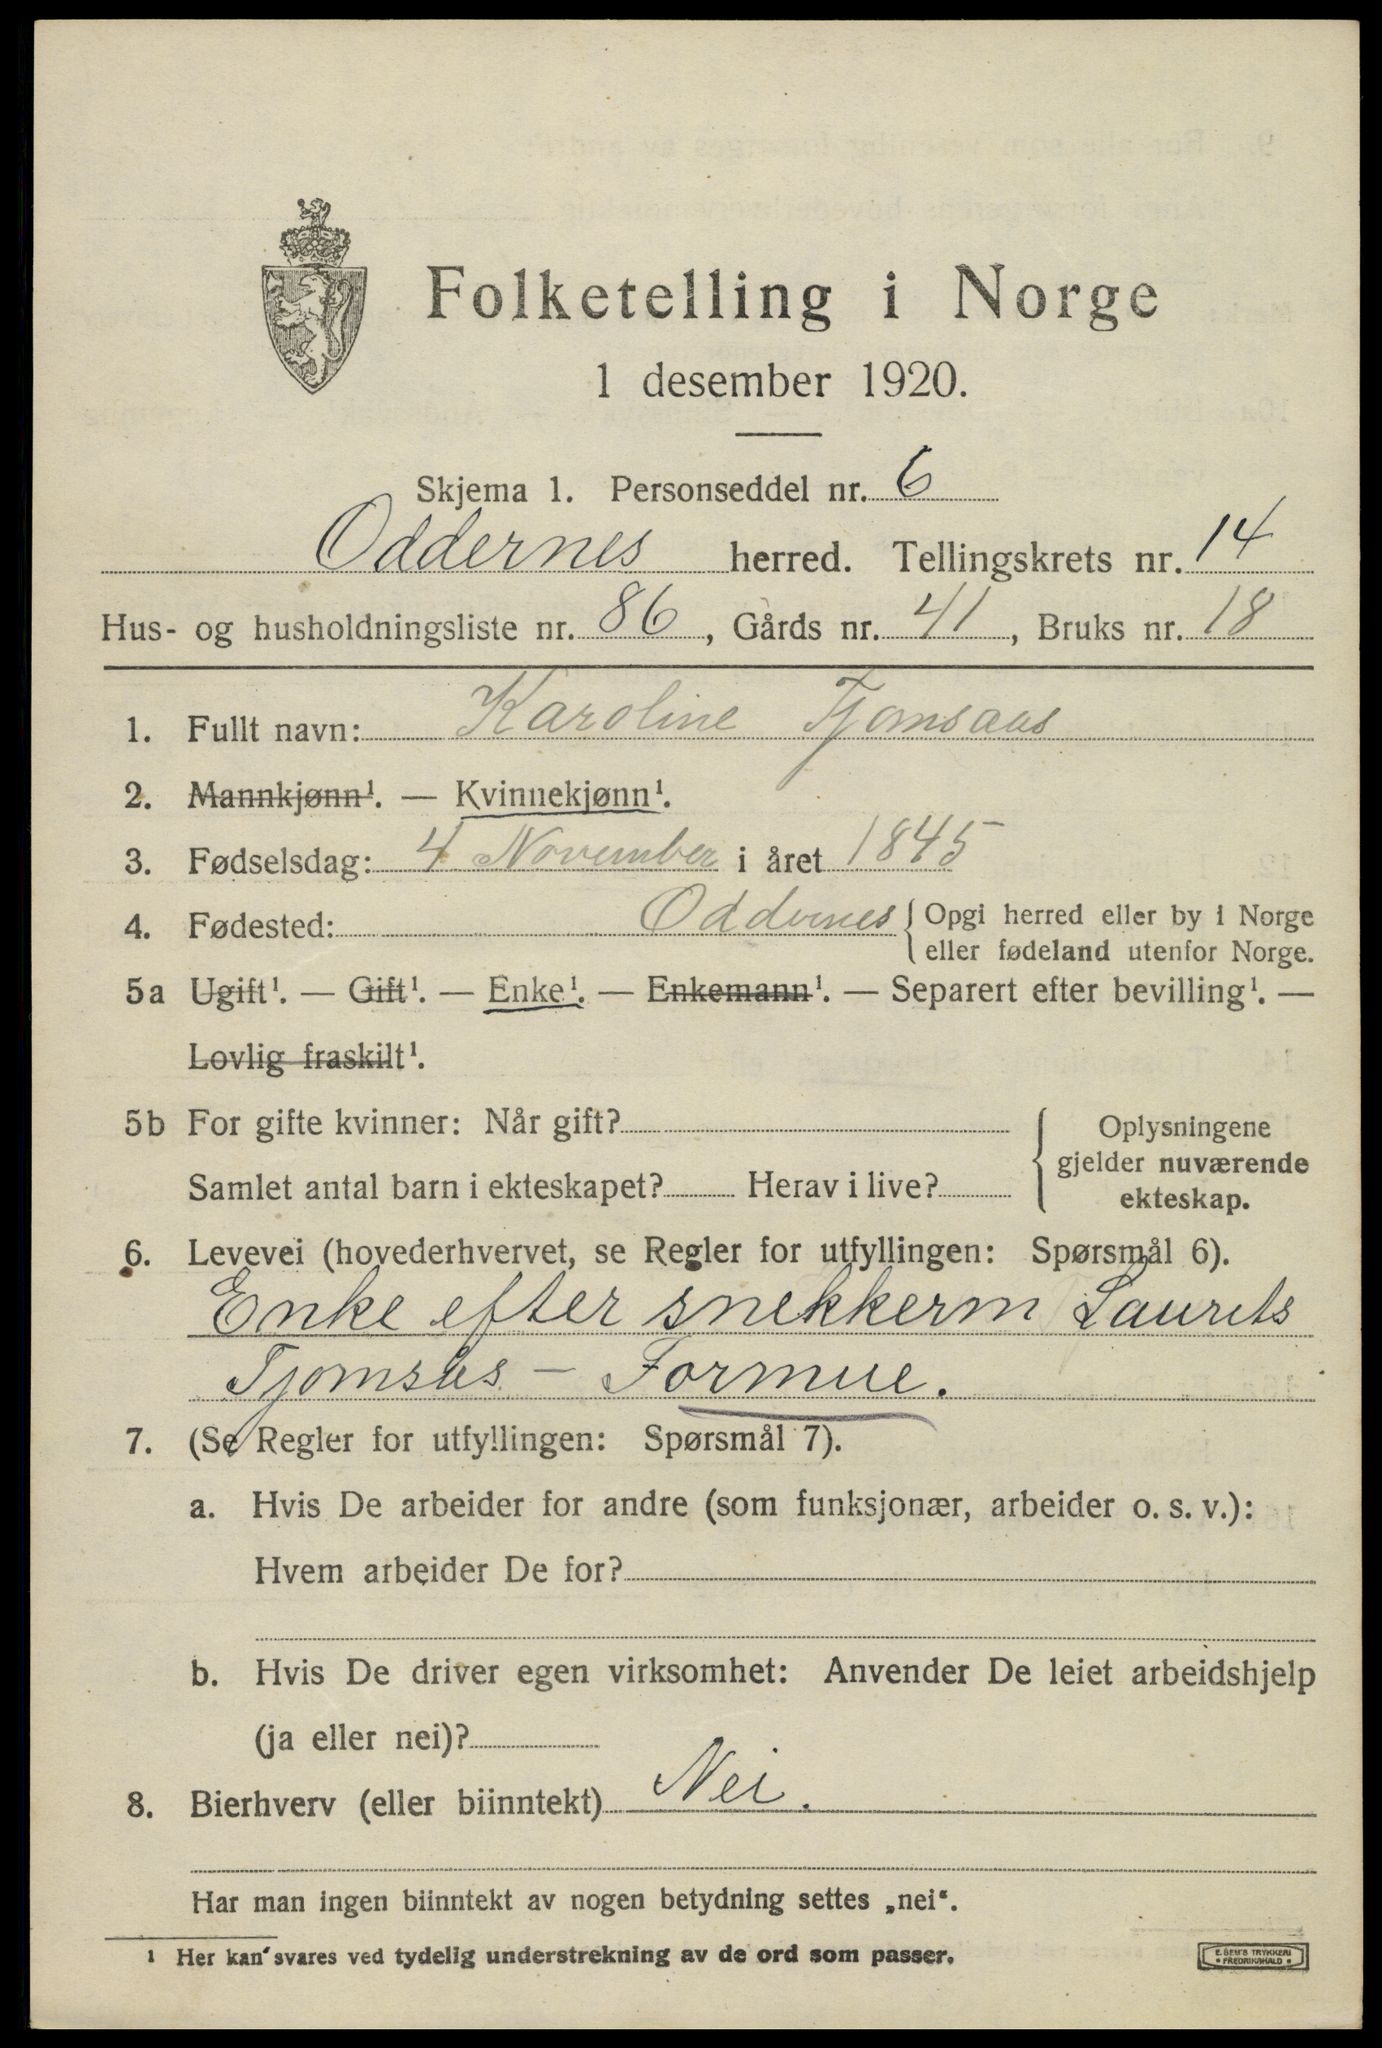 Folketelling i Norge
1 desember 1920.
Skjema 1. Personseddel nr. 6
Oddernes herred. Tellingskrets nr. 14
Hus- og husholdningsliste nr. 86, Gårds nr. 41, Bruks nr. 18
1. Fullt navn: Karoline Tjomsaas
2. Mannkjønn¹. — Kvinnekjønn¹.
3. Fødselsdag: 4 November i året 1845
4. Fødested: Oddernes { Opgi herred eller by i Norge
eller fødeland utenfor Norge.
5a Ugift¹. — Gift¹. — Enke¹. — Enkemann¹. — Separert efter bevilling¹. —
Lovlig fraskilt¹.
5b For gifte kvinner: Når gift?
Samlet antal barn i ekteskapet? Herav i live?
Oplysningene
gjelder nuværende
ekteskap.
6. Levevei (hovederhvervet, se Regler for utfyllingen: Spørsmål 6).
Enke efter snekkerm Laurits
Tjomsås – Formue.
7. (Se Regler for utfyllingen: Spørsmål 7).
a. Hvis De arbeider for andre (som funksjonær, arbeider o. s. v.):
Hvem arbeider De for?
b. Hvis De driver egen virksomhet: Anvender De leiet arbeidshjelp
(ja eller nei)?
8. Bierhverv (eller biinntekt) Nei.
Har man ingen biinntekt av nogen betydning settes „nei“.
¹ Her kan svares ved tydelig understrekning av de ord som passer.
E. SEM'S TRYKKERI
• FREDRIKSHALD •